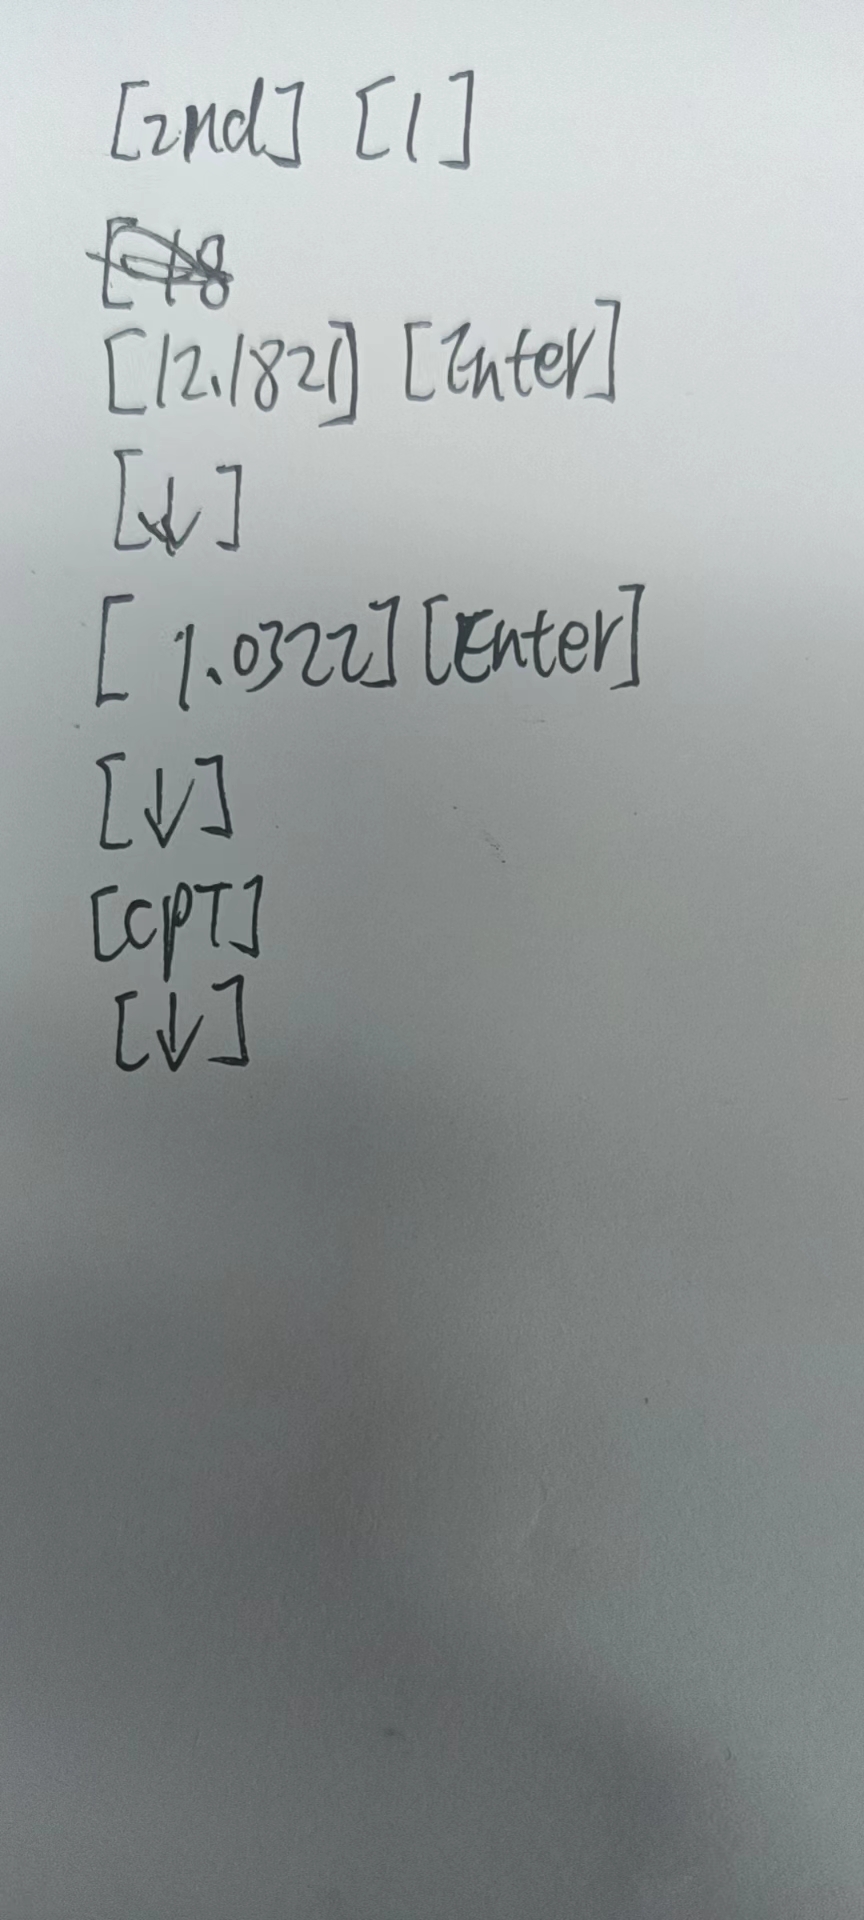 [2nd] [1]
[12.1821] [Enter]
[↓]
[1.0322] [Enter]
[↓]
[CPT]
[↓]